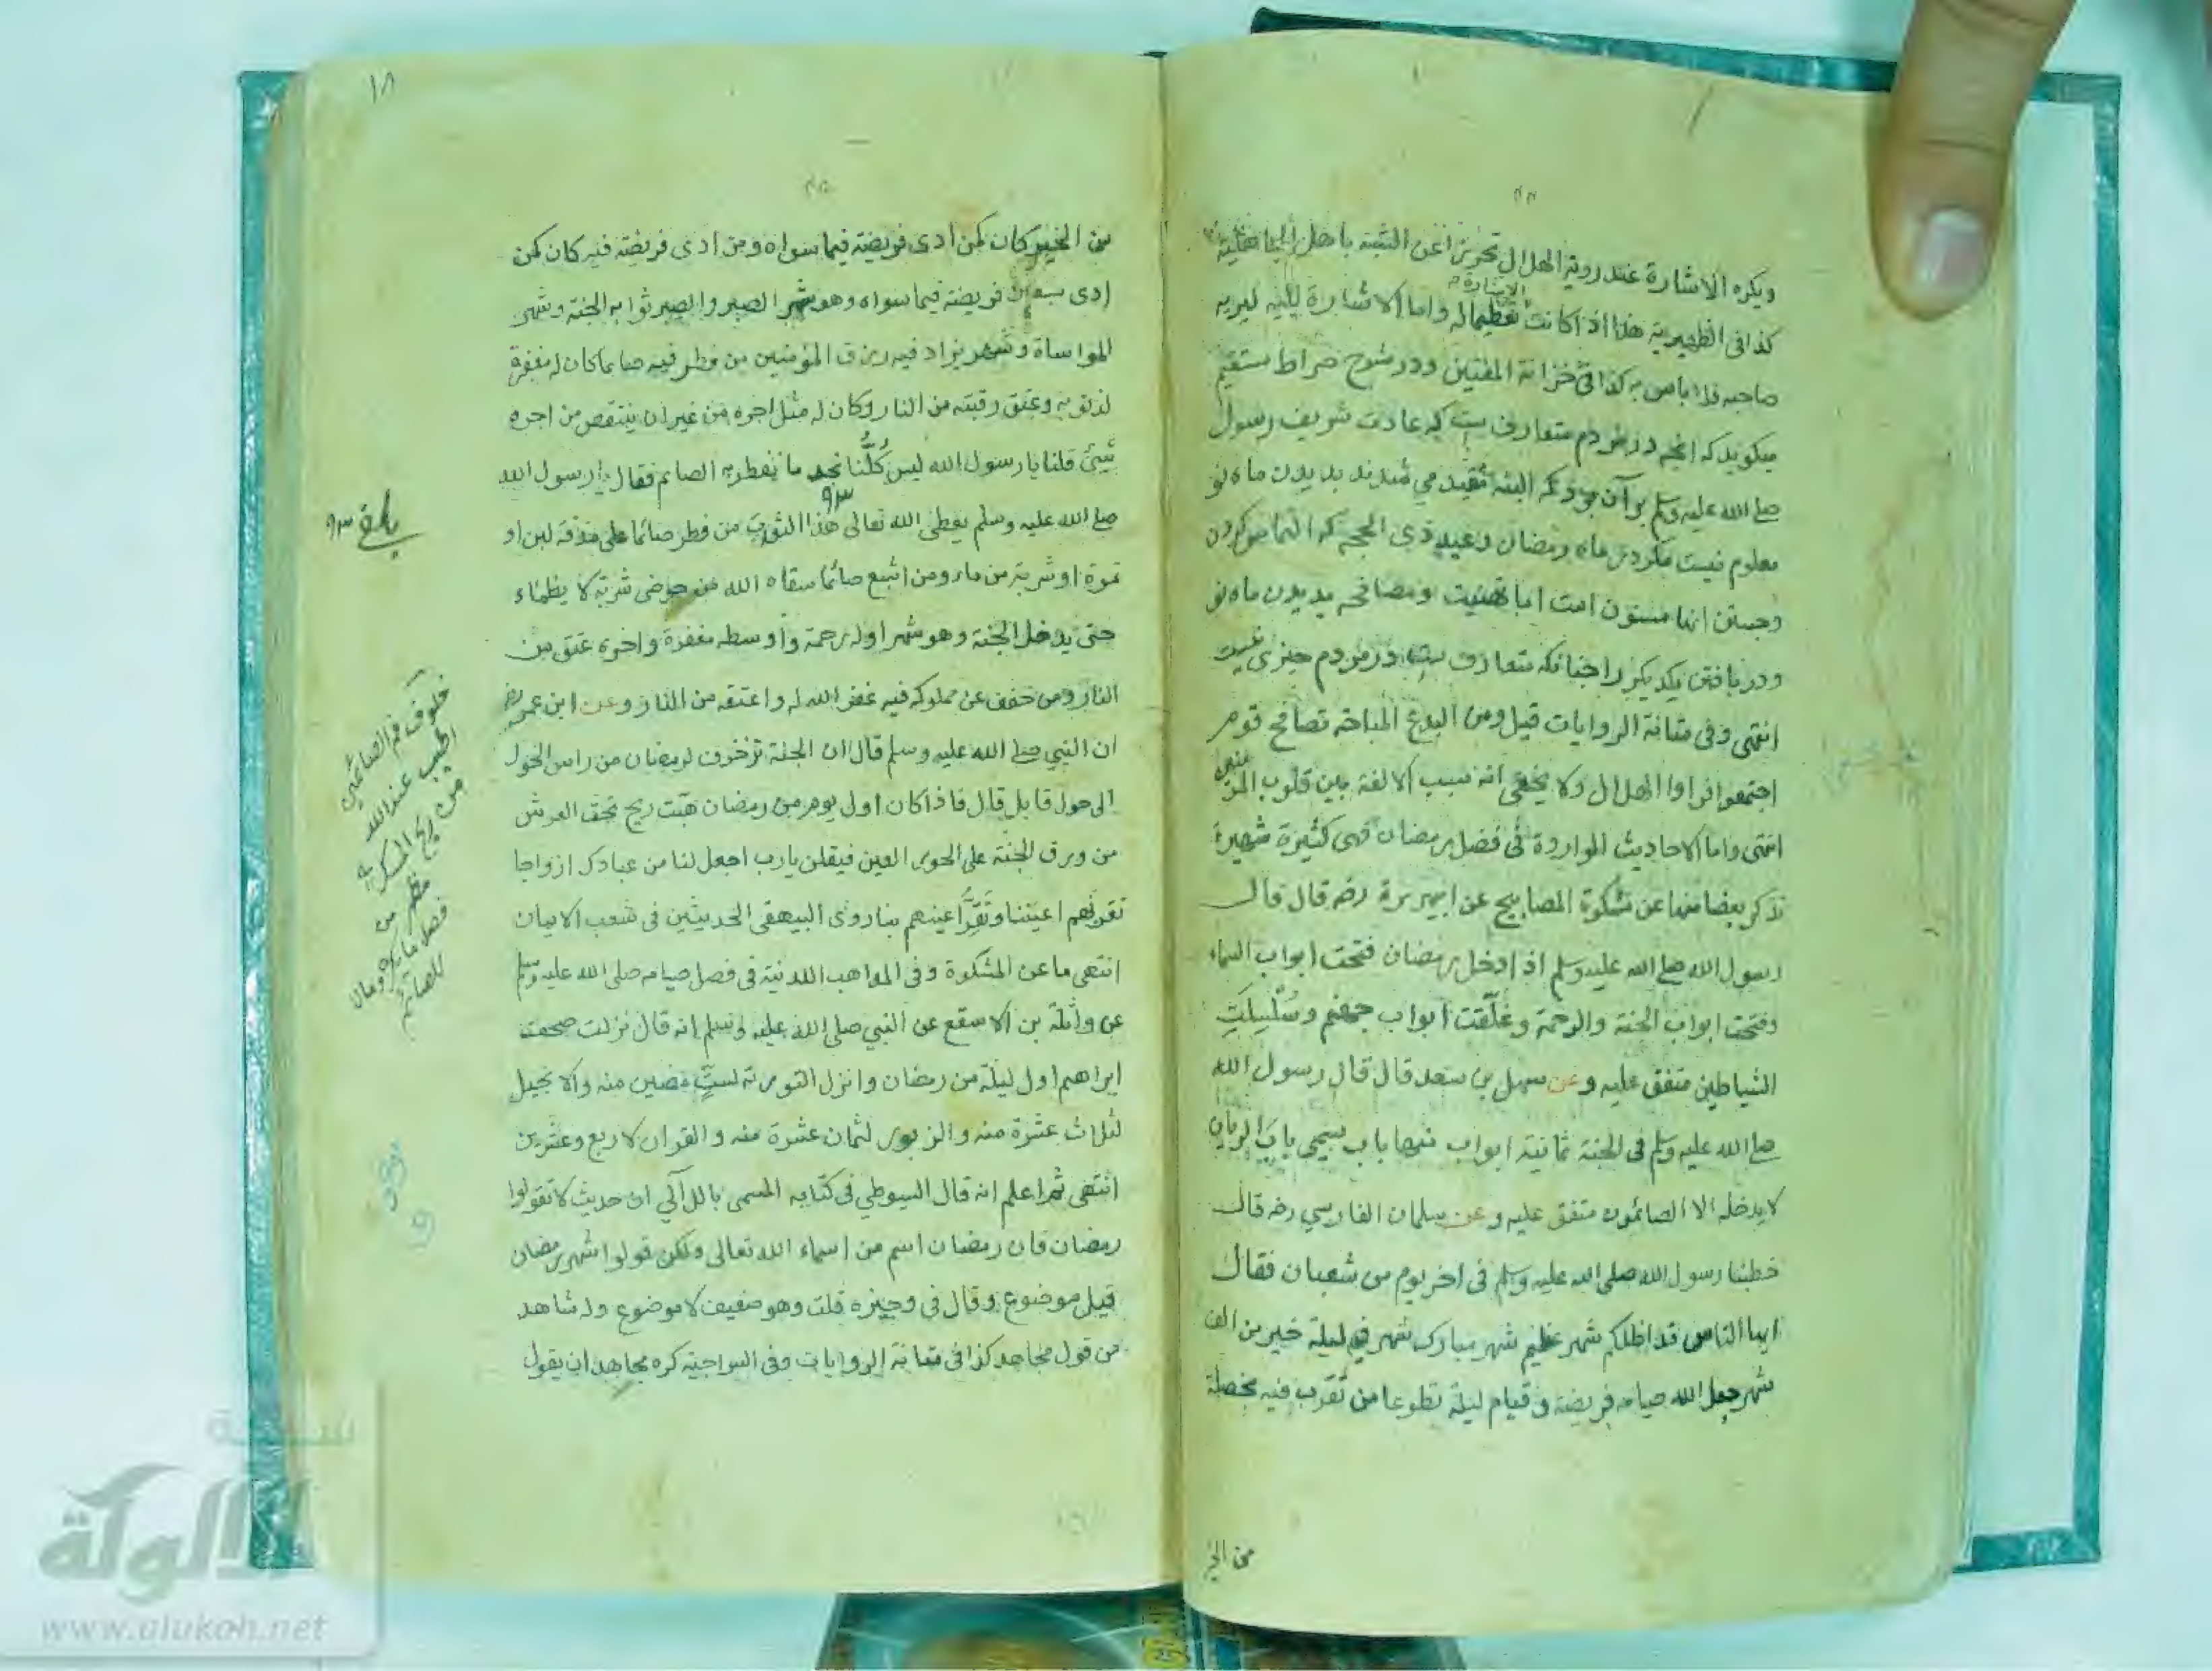 ويكره الاشارة عند روية الهلال تحرزا عن التشبه باهل الجاهلية
كذا فى الظهيرية هذا اذا كانت الاشارة تعظيما له واما الاشارة ليلية ليريه
صاحبه فلا باس به كذا فى خزانة المفتين ودر شرح صراط مستقيم
ميكويد كه انچه در مردم متعارف است كه عادت شريف رسول
صلى الله عليه وسلم بر آن بود كه البته مقيد مي شدند بديدن ماه نو
معلوم نيست مكر در ماه رمضان وعيد ذى الحجه كه التماس كردن
وجستن انها مسنون است اما تهنيت ومصافحه بديدن ماه نو
ودريافتن يكديكر را چنانكه متعارف است در مردم چيزى نيست
انتهى وفى متانة الروايات قيل ومن البدع المباحة تصافح قوم
اجتمعوا فراوا الهلال ولا يخفى انه سبب الالفة بين قلوب المؤمنين
انتهى واما الاحاديث الواردة فى فضل رمضان فهى كثيرة شهيرة
نذكر بعضا منها عن مشكوة المصابيح عن ابي هريرة رضه قال قال
رسول الله صلى الله عليه وسلم اذا دخل رمضان فتحت ابواب السماء
وفتحت ابواب الجنة والرحمة وغُلّقت ابواب جهنم وسُلْسِلَتِ
الشياطين متفق عليه وعن سهل بن سعد قال قال رسول الله
صلى الله عليه وسلم فى الجنة ثمانية ابواب منها باب يسمى باب الريان
لا يدخله الا الصائمون متفق عليه وعن سلمان الفارسي رضه قال
خطبنا رسول الله صلى الله عليه وسلم فى اخر يوم من شعبان فقال
ايها الناس قد اظلكم شهر عظيم شهر مبارك شهر فيه ليلة خير من الف
شهر جعل الله صيامه فريضة و قيام ليلة تطوعا من تقرب فيه بخصلة
من الخير
١٨
من الخير كان كمن ادى فريضة فيما سواه ومن ادى فريضة فيه كان كمن
ادى سبعين فريضة فيما سواه وهو شهر الصبر والصبر ثوابه الجنة وشهر
المواساة وشهر يزاد فيه رزق المؤمنين من فطر فيه صايما كان له مغفرة
لذنوبه وعتق رقبته من النار وكان له مثل اجره من غير ان ينتقص من اجره
شيئ قلنا يا رسول الله ليس كُلُّنا نجد ما نفطر به الصائم فقال رسول الله
صلى الله عليه وسلم يعطى الله تعالى هذا الثواب من فطر صائما على مذقة لبن او
تمرة او شربة من ماء ومن اشبع صائما سقاه الله من حوضى شربة لا يظماء
حتى يدخل الجنة وهو شهر اوله رحمة واوسطه مغفرة واخره عتق من
النار ومن خفف عن مملوكه فيه غفر الله له واعتقه من النار وعن ابن عمر رضه
ان النبي صلى الله عليه وسلم قال ان الجنة تزخرف لرمضان من راس الحول
الى حول قابل قال فاذا كان اول يوم من رمضان هبّت ريح تحت العرش
من ورق الجنة على الحور العين فيقلن يارب اجعل لنا من عبادك ازواجا
تقر بهم اعيننا وتَقَرُّ اعينهم بنا روى البيهقى الحديثين فى شعب الايمان
انتهى ما عن المشكوة وفى المواهب اللدنية فى فصل صيامه صلى الله عليه وسلم
عن واثلة بن الاسقع عن النبي صلى الله عليه وسلم انه قال نزلت صحف
ابراهيم اول ليلة من رمضان وانزل التورية لستٍّ مضين منه والانجيل
لثلاث عشرة منه والزبور لثمان عشرة منه والقران لاربع وعشرين
انتهى ثم اعلم انه قال السيوطي فى كتابه المسمى باللآلي ان حديث لا تقولوا
رمضان فان رمضان اسم من اسماء الله تعالى ولكن قولوا شهر رمضان
قيل موضوع وقال فى وجيزه قلت وهو ضعيف لا موضوع وله شاهد
من قول مجاهد كذا فى متانة الروايات وفى السراجية كره مجاهد ان يقول
خلوف فم الصائمين
اطيب عند الله
من ريح المسك
مظهر من
فصل ما يكره وما لا
للصائم
الألوكة
www.alukah.net